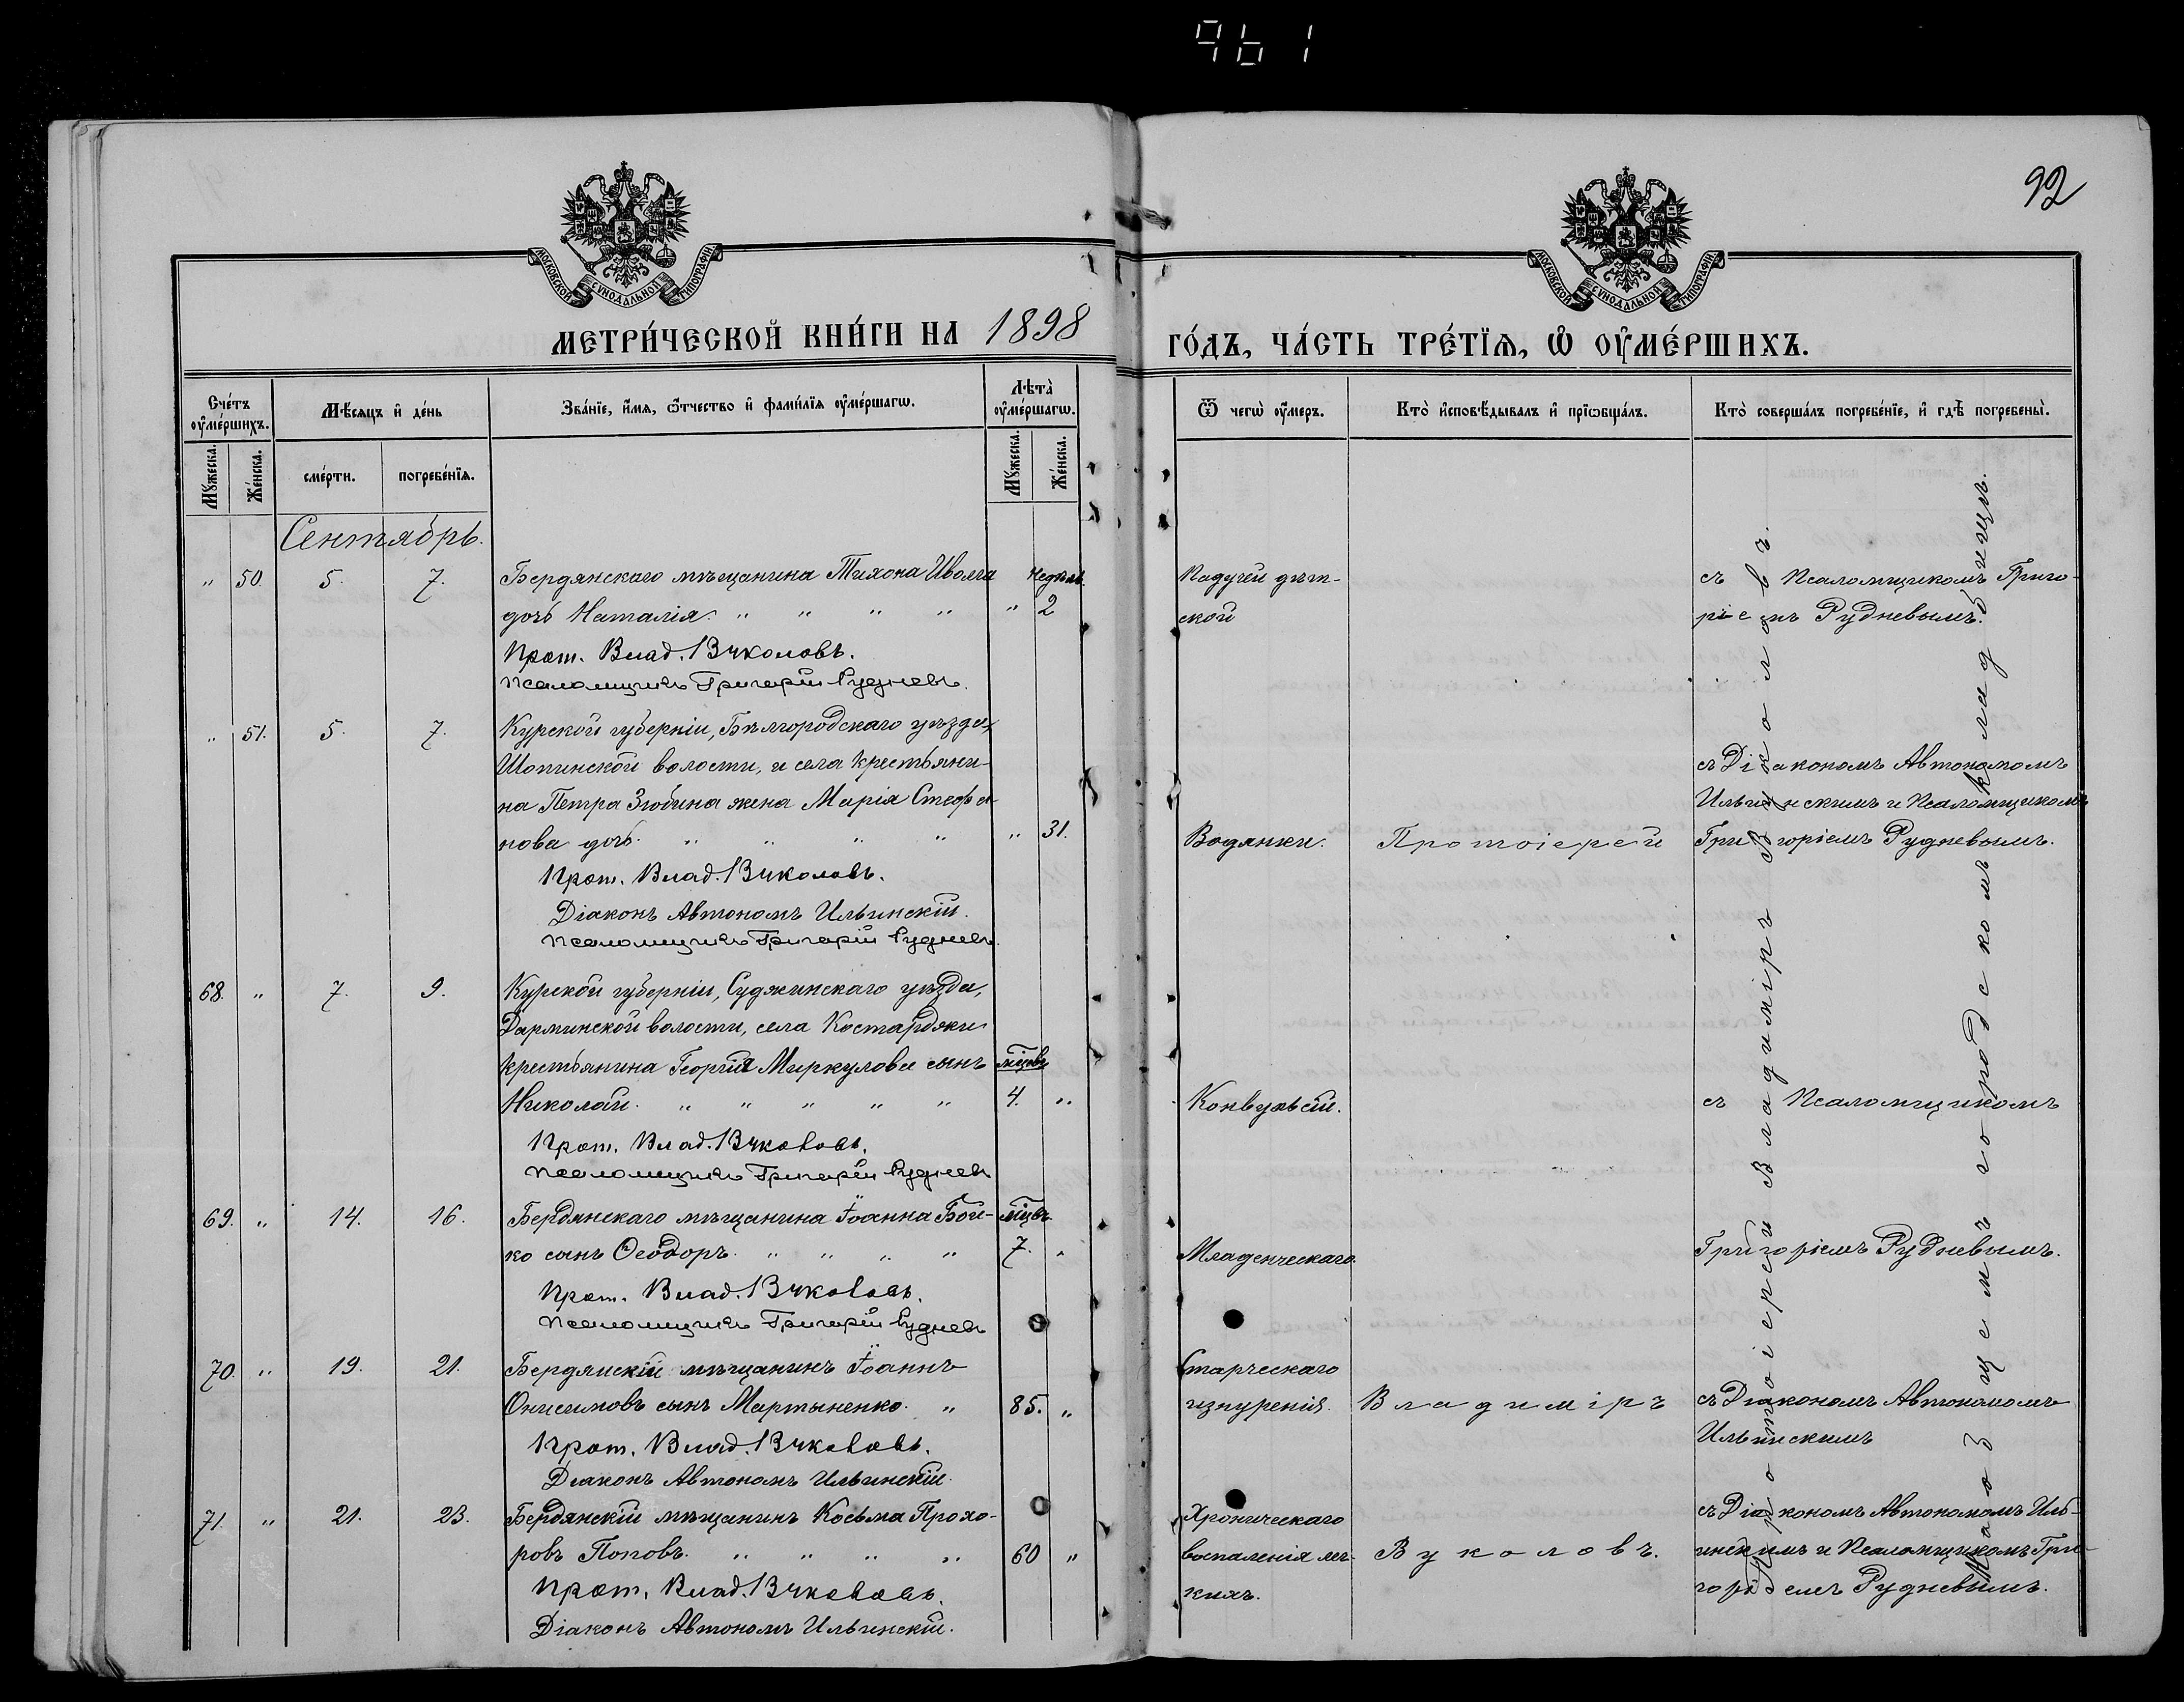 961
92
МОСКОВСКОЙ СѴНОДАЛЬНОЙ ТИПОГРАФІИ
МОСКОВСКОЙ СѴНОДАЛЬНОЙ ТИПОГРАФІИ
МЕТРИ́ЧЕСКОЙ КНИ́ГИ НА 1898
ГО́ДЪ, ЧА́СТЬ ТРЕ́ТЇѦ, Ѡ҆ ОУ҆МЕ́РШИХЪ.
Сче́тъ оу҆ме́ршихъ.
Мѣ́сѧцъ и҆ де́нь
Зва́нїе, и҆́мѧ, ѻ҆́тчество и҆ фами́лїѧ оу҆ме́ршагѡ.
Лѣ́та оу҆ме́ршагѡ.
Ѿ чегѡ̀ оу҆́мерз.
Кто̀ и҆сповѣ́дывалъ и҆ прїѡбща́лъ.
Кто̀ соверша́лъ погребе́нїе, и҆ гдѣ̀ погребены̀.
Му́жеска.
Же́нска.
сме́рти.
погребе́нїѧ.
Му́жеска.
Же́нска.
Сентябрь.
" 50. 5. 7. Бердянскаго мѣщанина Тихона Иволга недѣль.
дочь Наталія. " " " " " 2
Прот. Влад. Вуколовъ.
Псаломщикъ Григорій Рудневъ.
Падучей дѣт-
ской
съ Псаломщикомъ Григо-
ріемъ Рудневымъ.
" 51. 5. 7. Курской губерніи, Бѣлгородскаго уѣзда,
Шопинской волости, и села крестьяни-
на Петра Злобина жена Марія Стефа-
нова дочь. " " " " " 31.
Прот. Влад. Вуколовъ.
Діаконъ Автономъ Ильинскій.
Псаломщикъ Григорій Рудневъ.
Водянки.
Протоіерей
съ Діакономъ Автономомъ
Ильинскимъ и Псаломщикомъ
Григоріемъ Рудневымъ.
68. " 7. 9. Курской губерніи, Суджинскаго уѣзда,
Дарминской волости, села
крестьянина Георгія Меркулова сынъ мѣцовъ
Николай. " " " " " 4. "
Прот. Влад. Вуколовъ.
Псаломщикъ Григорій Рудневъ
Конвульсій.
съ Псаломщикомъ
69. " 14. 16. Бердянскаго мѣщанина Іоанна Бой- мѣцвъ.
ко сынъ Ѳеодоръ. " " " " 7. "
Прот. Влад. Вуколовъ.
Псаломщикъ Григорій Рудневъ
Младенческаго.
Григоріемъ Рудневымъ.
70. " 19. 21. Бердянскій мѣщанинъ Іоаннъ
Онисимовъ сынъ Мартыненко. " 85. "
Прот. Влад. Вуколовъ.
Діаконъ Автономъ Ильинскій.
Старческаго
изнуренія.
Владиміръ
съ Діакономъ Автономомъ
Ильинскимъ
71. " 21. 23. Бердянскій мѣщанинъ Косьма Прохо-
ровъ Поповъ. " " " " 60 "
Прот. Влад. Вуколовъ.
Діаконъ Автономъ Ильинскій.
Хроническаго
воспаленія лег-
кихъ.
Вуколовъ.
съ Діакономъ Автономомъ Иль-
инскимъ и Псаломщикомъ Гри-
горіемъ Рудневымъ.
Протоіерей Владиміръ Вуколовъ.
На озцемъ городскомъ кладбищѣ.